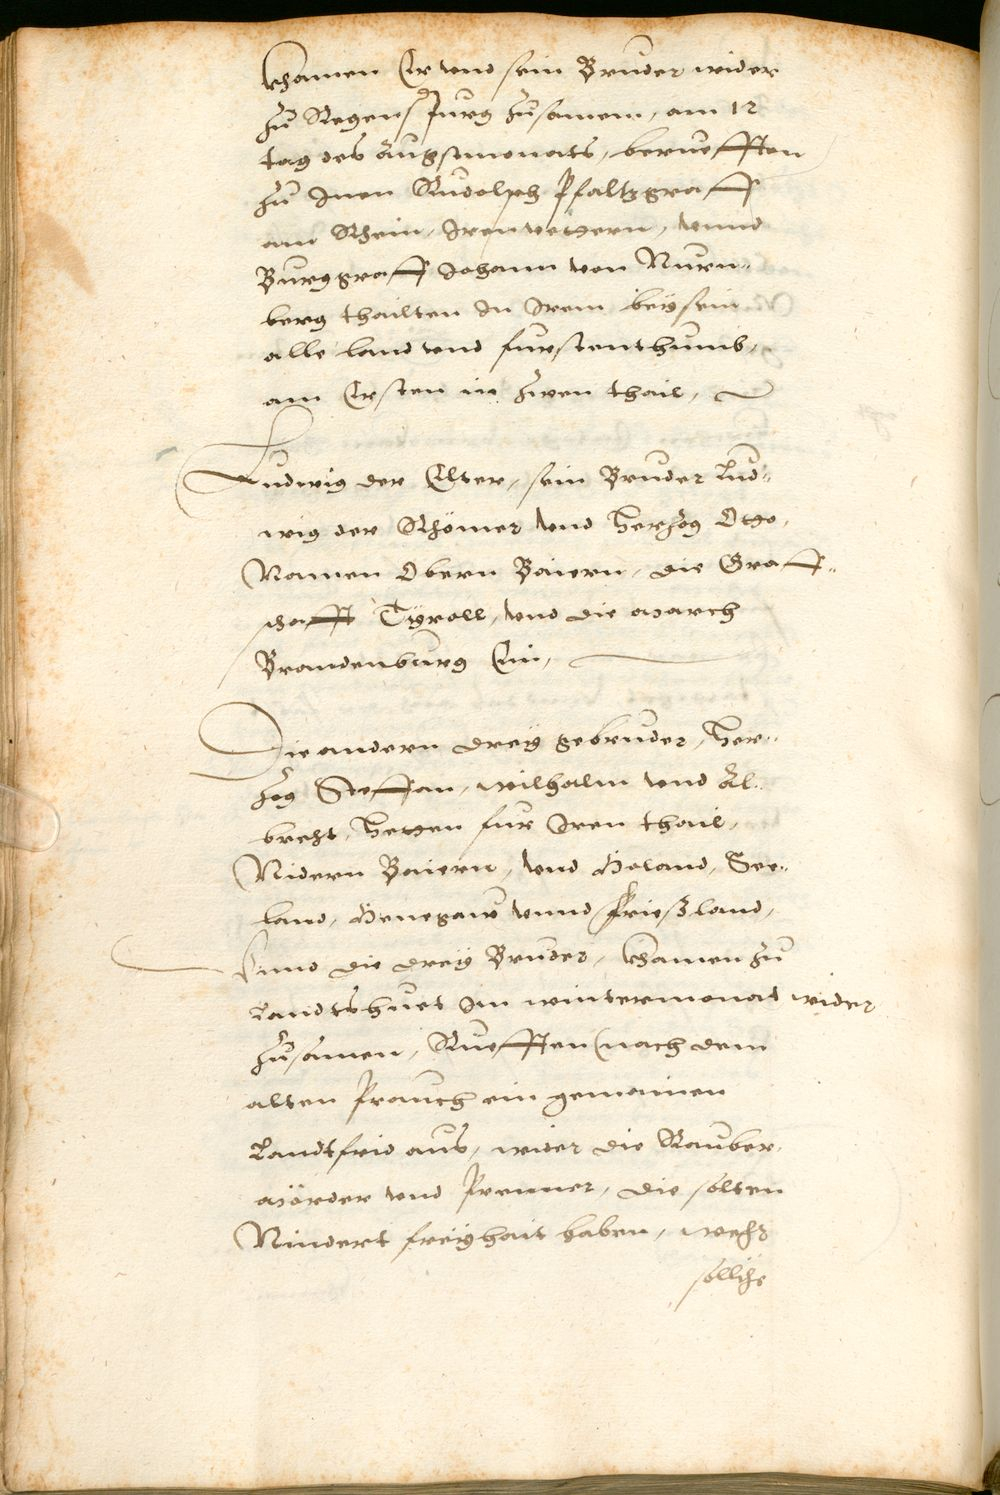 khamen Er vnd sein Bruder wider
zu Regenspurg zusamem, am 12
tag des Augstmonats, beruefften
zu Inen Rudolph Pfaltzgraff
am Rhein, Iren vettern, vnnd
Burggraff Johann von Nurn„
berg thailten In Irem beysein
alle land vnd furstenthumb,
am Ersten in zwen thail,
Ludwig der Elter, sein Bruder Lud„
wig der Rhömer vnd Herzog Otto,
Namen Obern Baiern, die Graff„
schafft Tyroll, vnd die March
Brandenburg Ein,
Die andern drey gebruder, Her„
zog Steffan, wilhalm vnd Al„
brecht, Hetten fur Iren thail,
Nidern Baiern, vnd Holand, See„
land, Henegaw vnnd Frießland,
Vnnd die drey Bruder, khamen zu
Landtshuet Im wintermonat wider
zusamen, Ruefften (nach dem
alten Prauch ein gemainen
Landtfrid aus, wider die Rauber,
Mörder vnd Prenner, die solten
Nindert freyhait haben, wehr
solliche